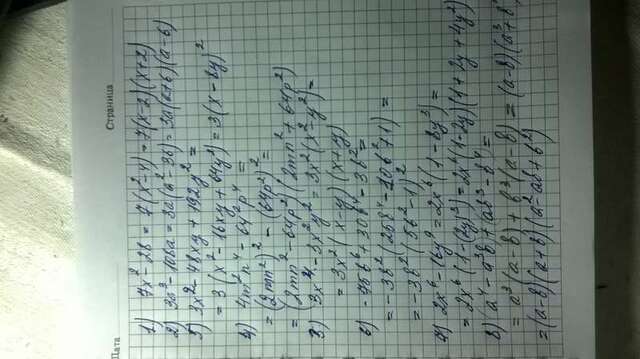 Страница
Дата
1) 7x² - 28 = 7(x² - 4) = 7(x-2)(x+2)
2) 3a³ - 108a = 3a(a² - 36) = 3a(a+6)(a-6)
3) 3x² - 48xy + 192y² =
= 3(x² - 16xy + 64y²) = 3(x - 8y)²
4) 4m²n⁴ - 64²p⁴ =
= (2mn²)² - (64p²)² =
= (2mn² - 64p²)(2mn² + 64p²)
5) 3x⁴ - 3x²y² = 3x²(x² - y²) =
= 3x²(x - y)(x + y)
6) -75b⁶ + 30b⁴ - 3b² =
= -3b²(25b⁴ - 10b² + 1) =
= -3b²(5b² - 1)²
7) 2x⁶ - 16y³ = 2x⁶(1 - 8y³) =
= 2x⁶(1 - (2y)³) = 2x⁶(1 - 2y)(1 + 2y + 4y²)
8) a⁴ - a³b + ab³ - b⁴ =
= a³(a - b) + b³(a - b) = (a - b)(a³ + b³)
= (a-b)(a+b)(a² - ab + b²)